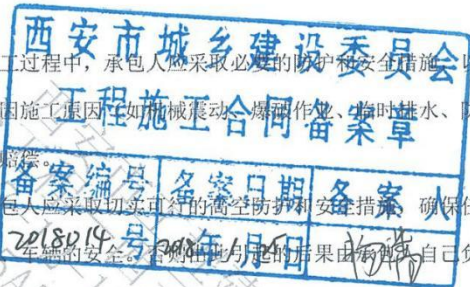 西安市城乡建设委员会
工过程中,承包人应采取必要的防护和安全措施,
工程施工合同备案章
因施工原因(如机械震动、爆破作业、临时排水、
赔偿。
备案编号 备案日期 备案人
包人应采取切实可行的高空防护和安全措施,确保
2018014号 2018年1月25日
车辆的安全。否则由此引起的后果由承包人自己